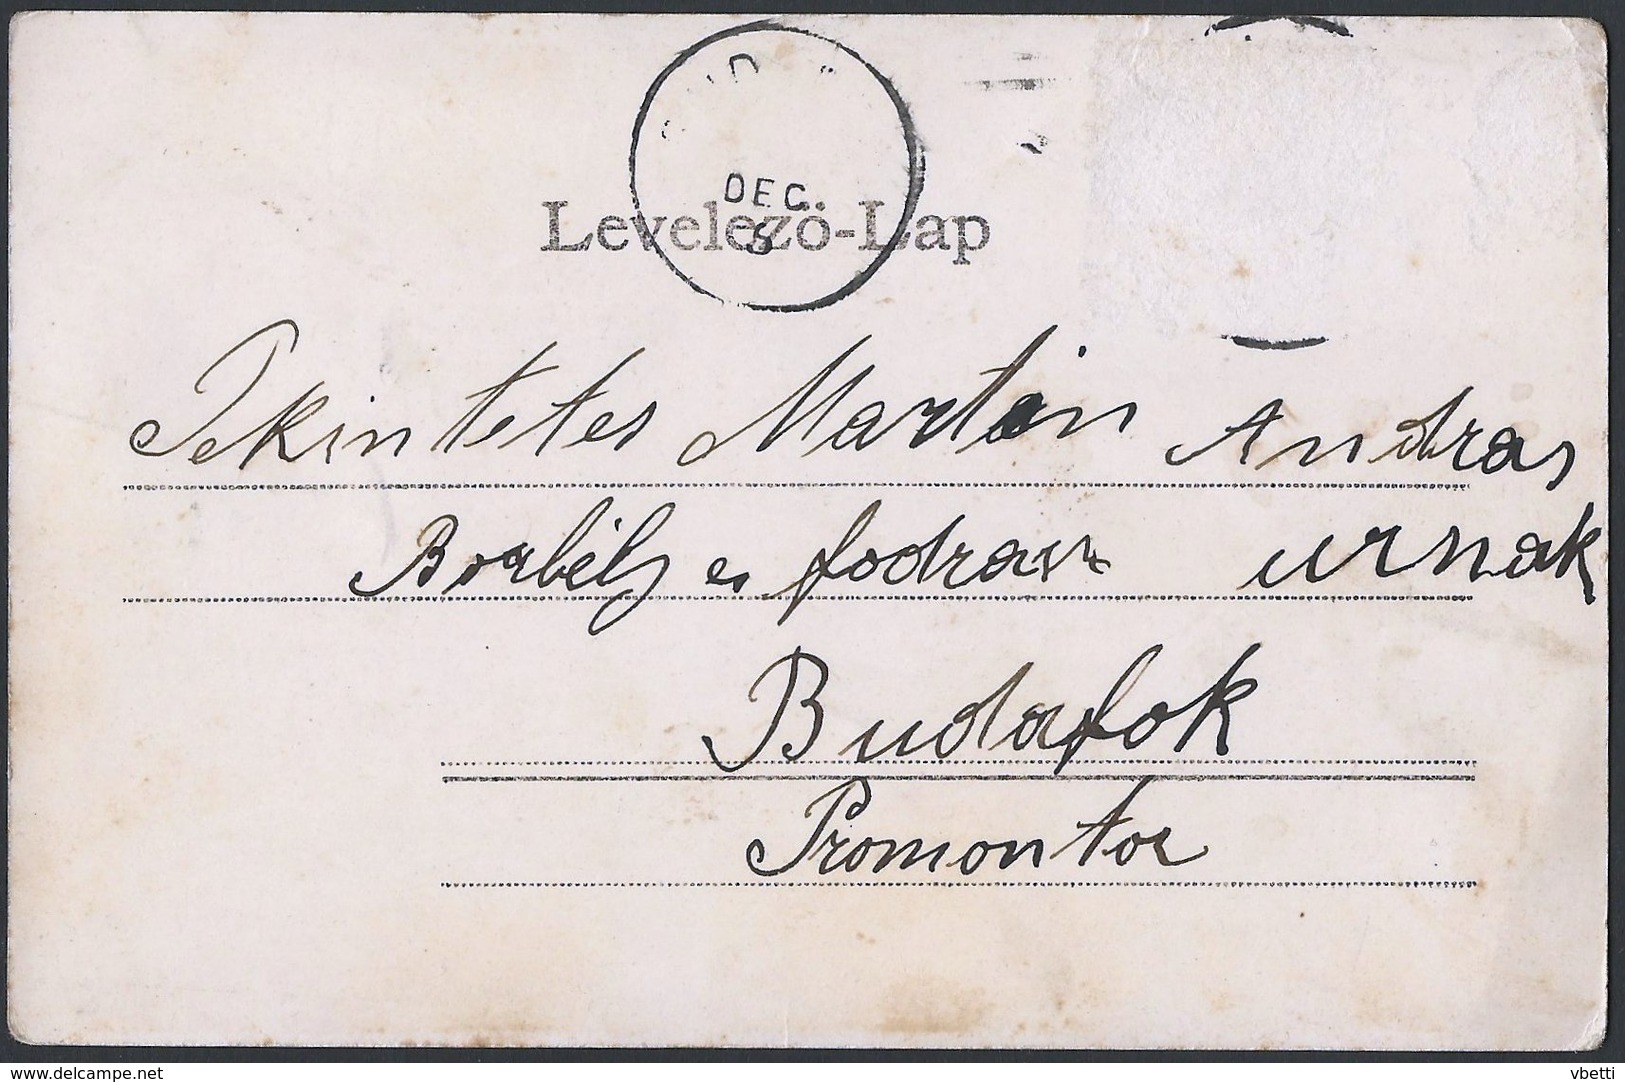 DEC.
5
Levelező-Lap
Tekintetes Martin Andras
Borbély es fodrasz urnak
Budafok
Promontor
www.delcampe.net
vbetti